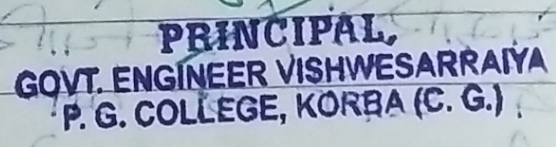 PRINCIPAL,
GOVT. ENGINEER VISHWESARRAIYA
P. G. COLLEGE, KORBA (C. G.)